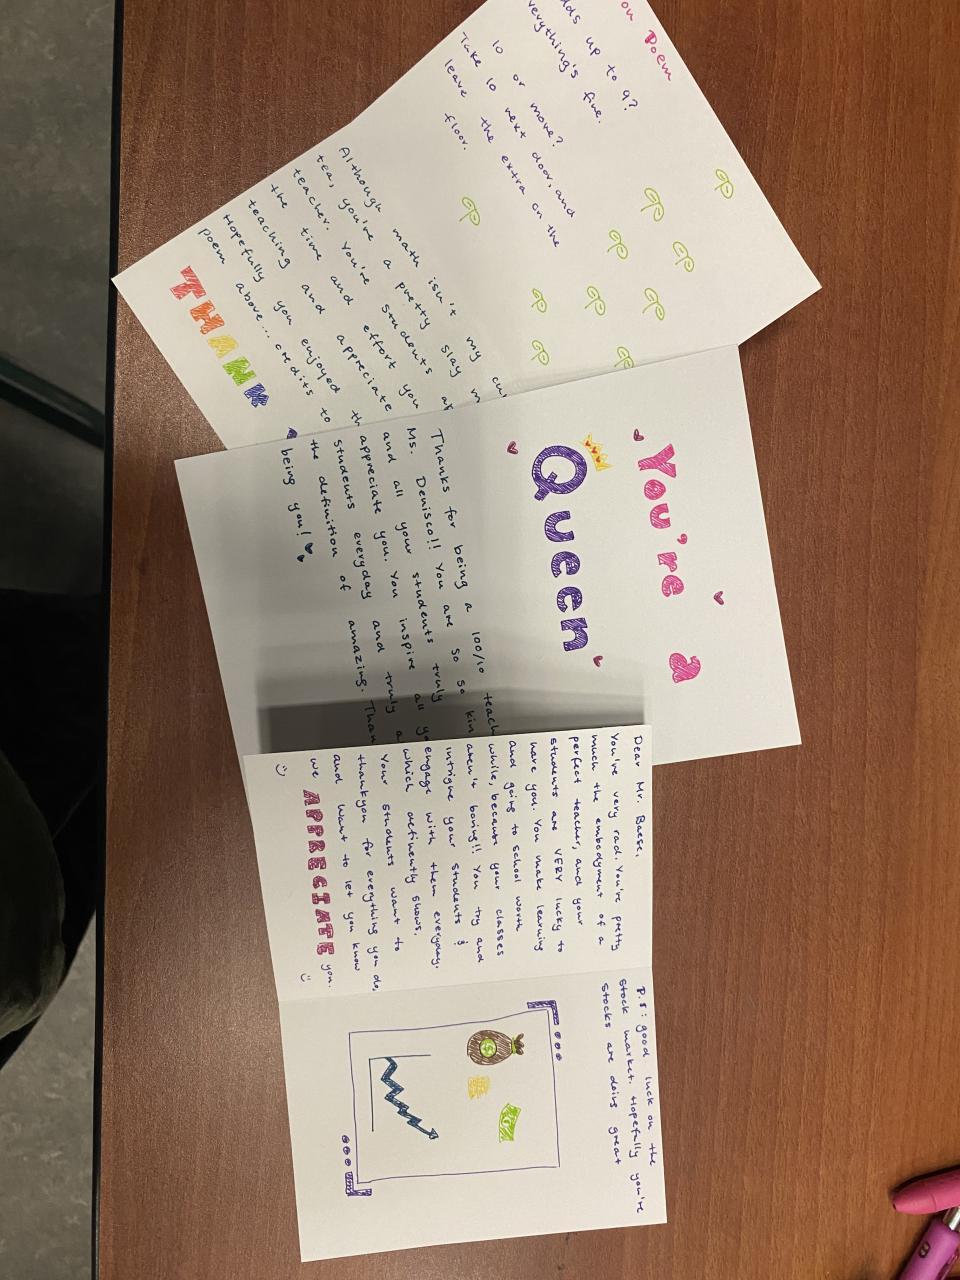 on Poem
adds up to 9?
everything's fine.
10 or more?
Take 10 next door, and
leave the extra on the
floor.
Although math isn't my cu
tea, you're a pretty slay m
teacher. You're students
the time and effort you
teaching and appreciate
Hopefully you enjoyed th
poem above... credits to
THANK
You're a
Queen
Thanks for being a 100/10 teach
Ms. Denisco!! You are so so kin
and all your students truly
appreciate you. You inspire all y
students everyday and truly a
the definition of amazing. Than
being you!
Dear Mr. Baese,
You're very rad. You're pretty
much the embodyment of a
perfect teacher, and your
students are VERY lucky to
have you. You make learning
and going to school worth
while, because your classes
aren't boring!! You try and
intrigue your students &
engage with them everyday.
which definently shows.
Your students want to
thankyou for everything you do,
and want to let you know
we APPRECIATE you.
:)
:)
P.S: good luck on the
stock market. Hopefully you're
stocks are doing great
$